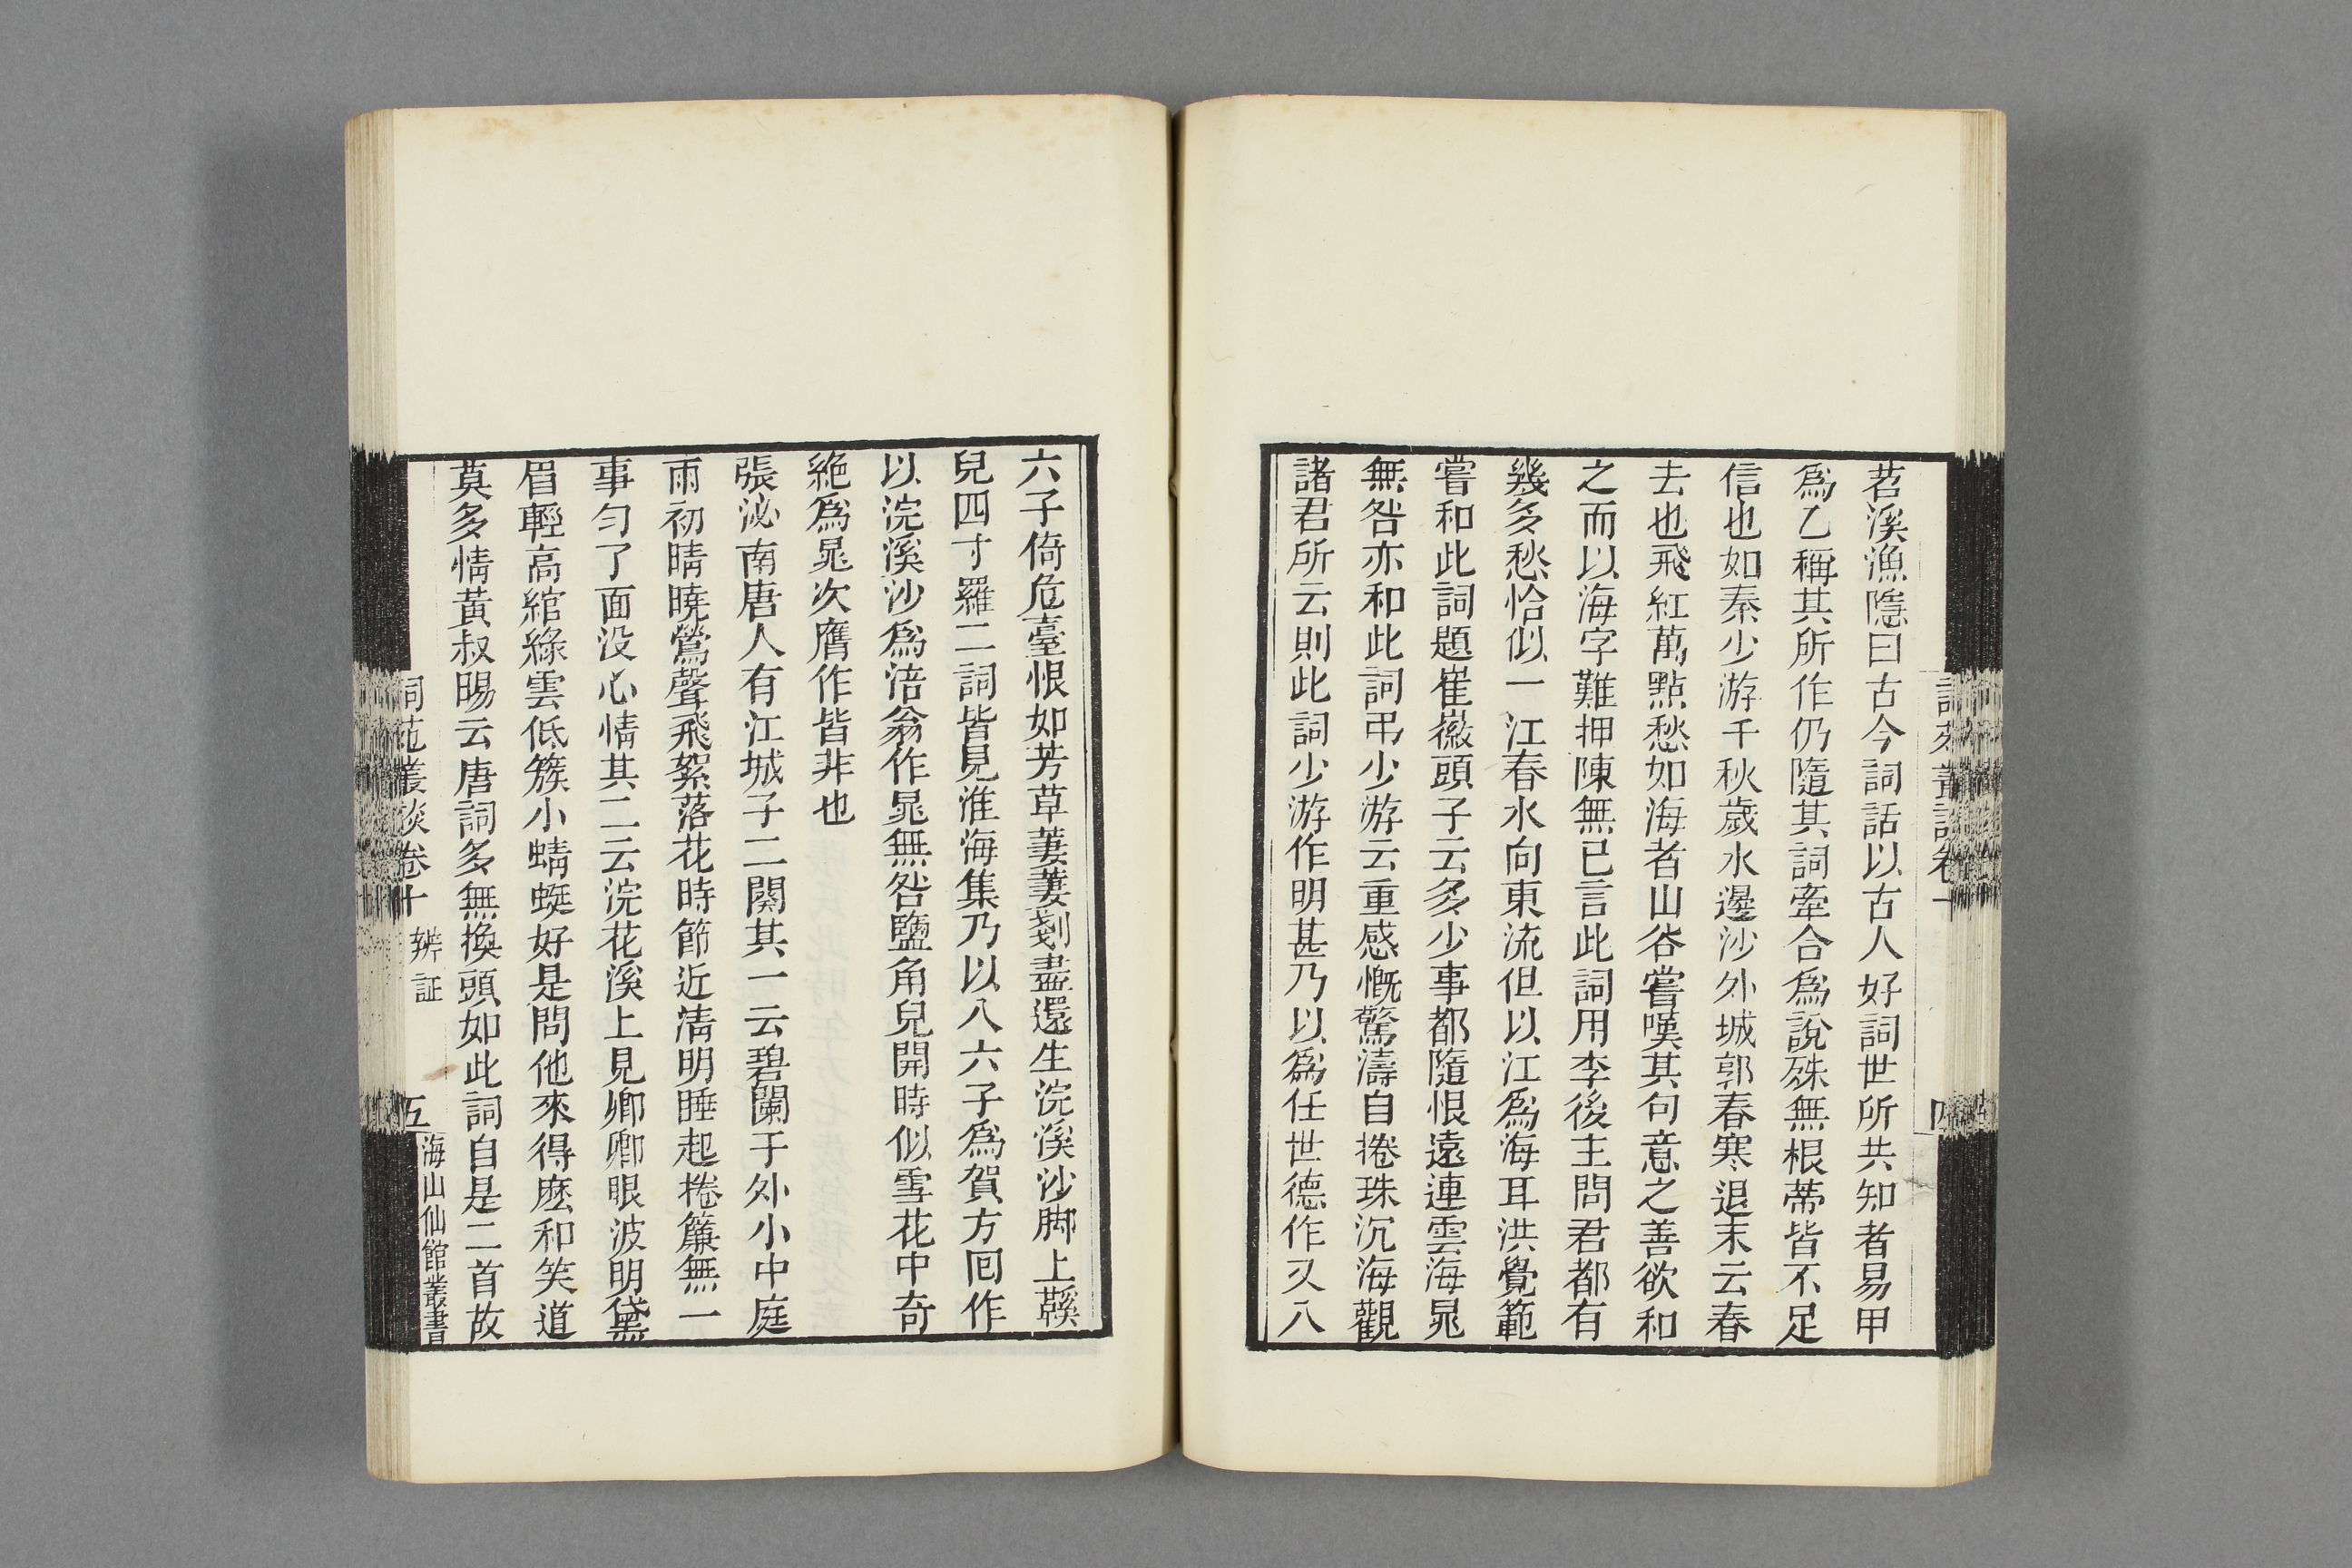 苕溪漁隱曰古今詞話以古人好詞世所共知者易甲
爲乙稱其所作仍隨其詞牽合爲說殊無根蒂皆不足
信也如秦少游千秋歲水邊沙外城郭春寒退末云春
去也飛紅萬點愁如海者山谷嘗嘆其句意之善欲和
之而以海字難押陳無已言此詞用李後主問君都有
幾多愁恰似一江春水向東流但以江爲海耳洪覺範
嘗和此詞題崔薇頭子云多少事都隨恨遠連雲海晁
無咎亦和此詞弔少游云重感慨驚濤自捲珠沉海觀
諸君所云則此詞少游作明甚乃以爲任世德作又八
六子倚危臺恨如芳草萋萋剗盡還生浣溪沙脚上鞵
兒四寸羅二詞皆見淮海集乃以八六子爲賀方回作
以浣溪沙爲涪翁作晁無咎鹽角兒開時似雪花中奇
絶爲晁次膺作皆非也
張泌南唐人有江城子二闋其一云碧闌于外小中庭
雨初晴曉鶯聲飛絮落花時節近淸明睡起捲簾無一
事匀了面没心情其二云浣花溪上見卿卿眼波明黛
眉輕高綰綠雲低簇小蜻蜓好是問他來得麽和笑道
莫多情黃叔暘云唐詞多無換頭如此詞自是二首故
詞苑叢談卷十 辨証 五 海山仙館叢書